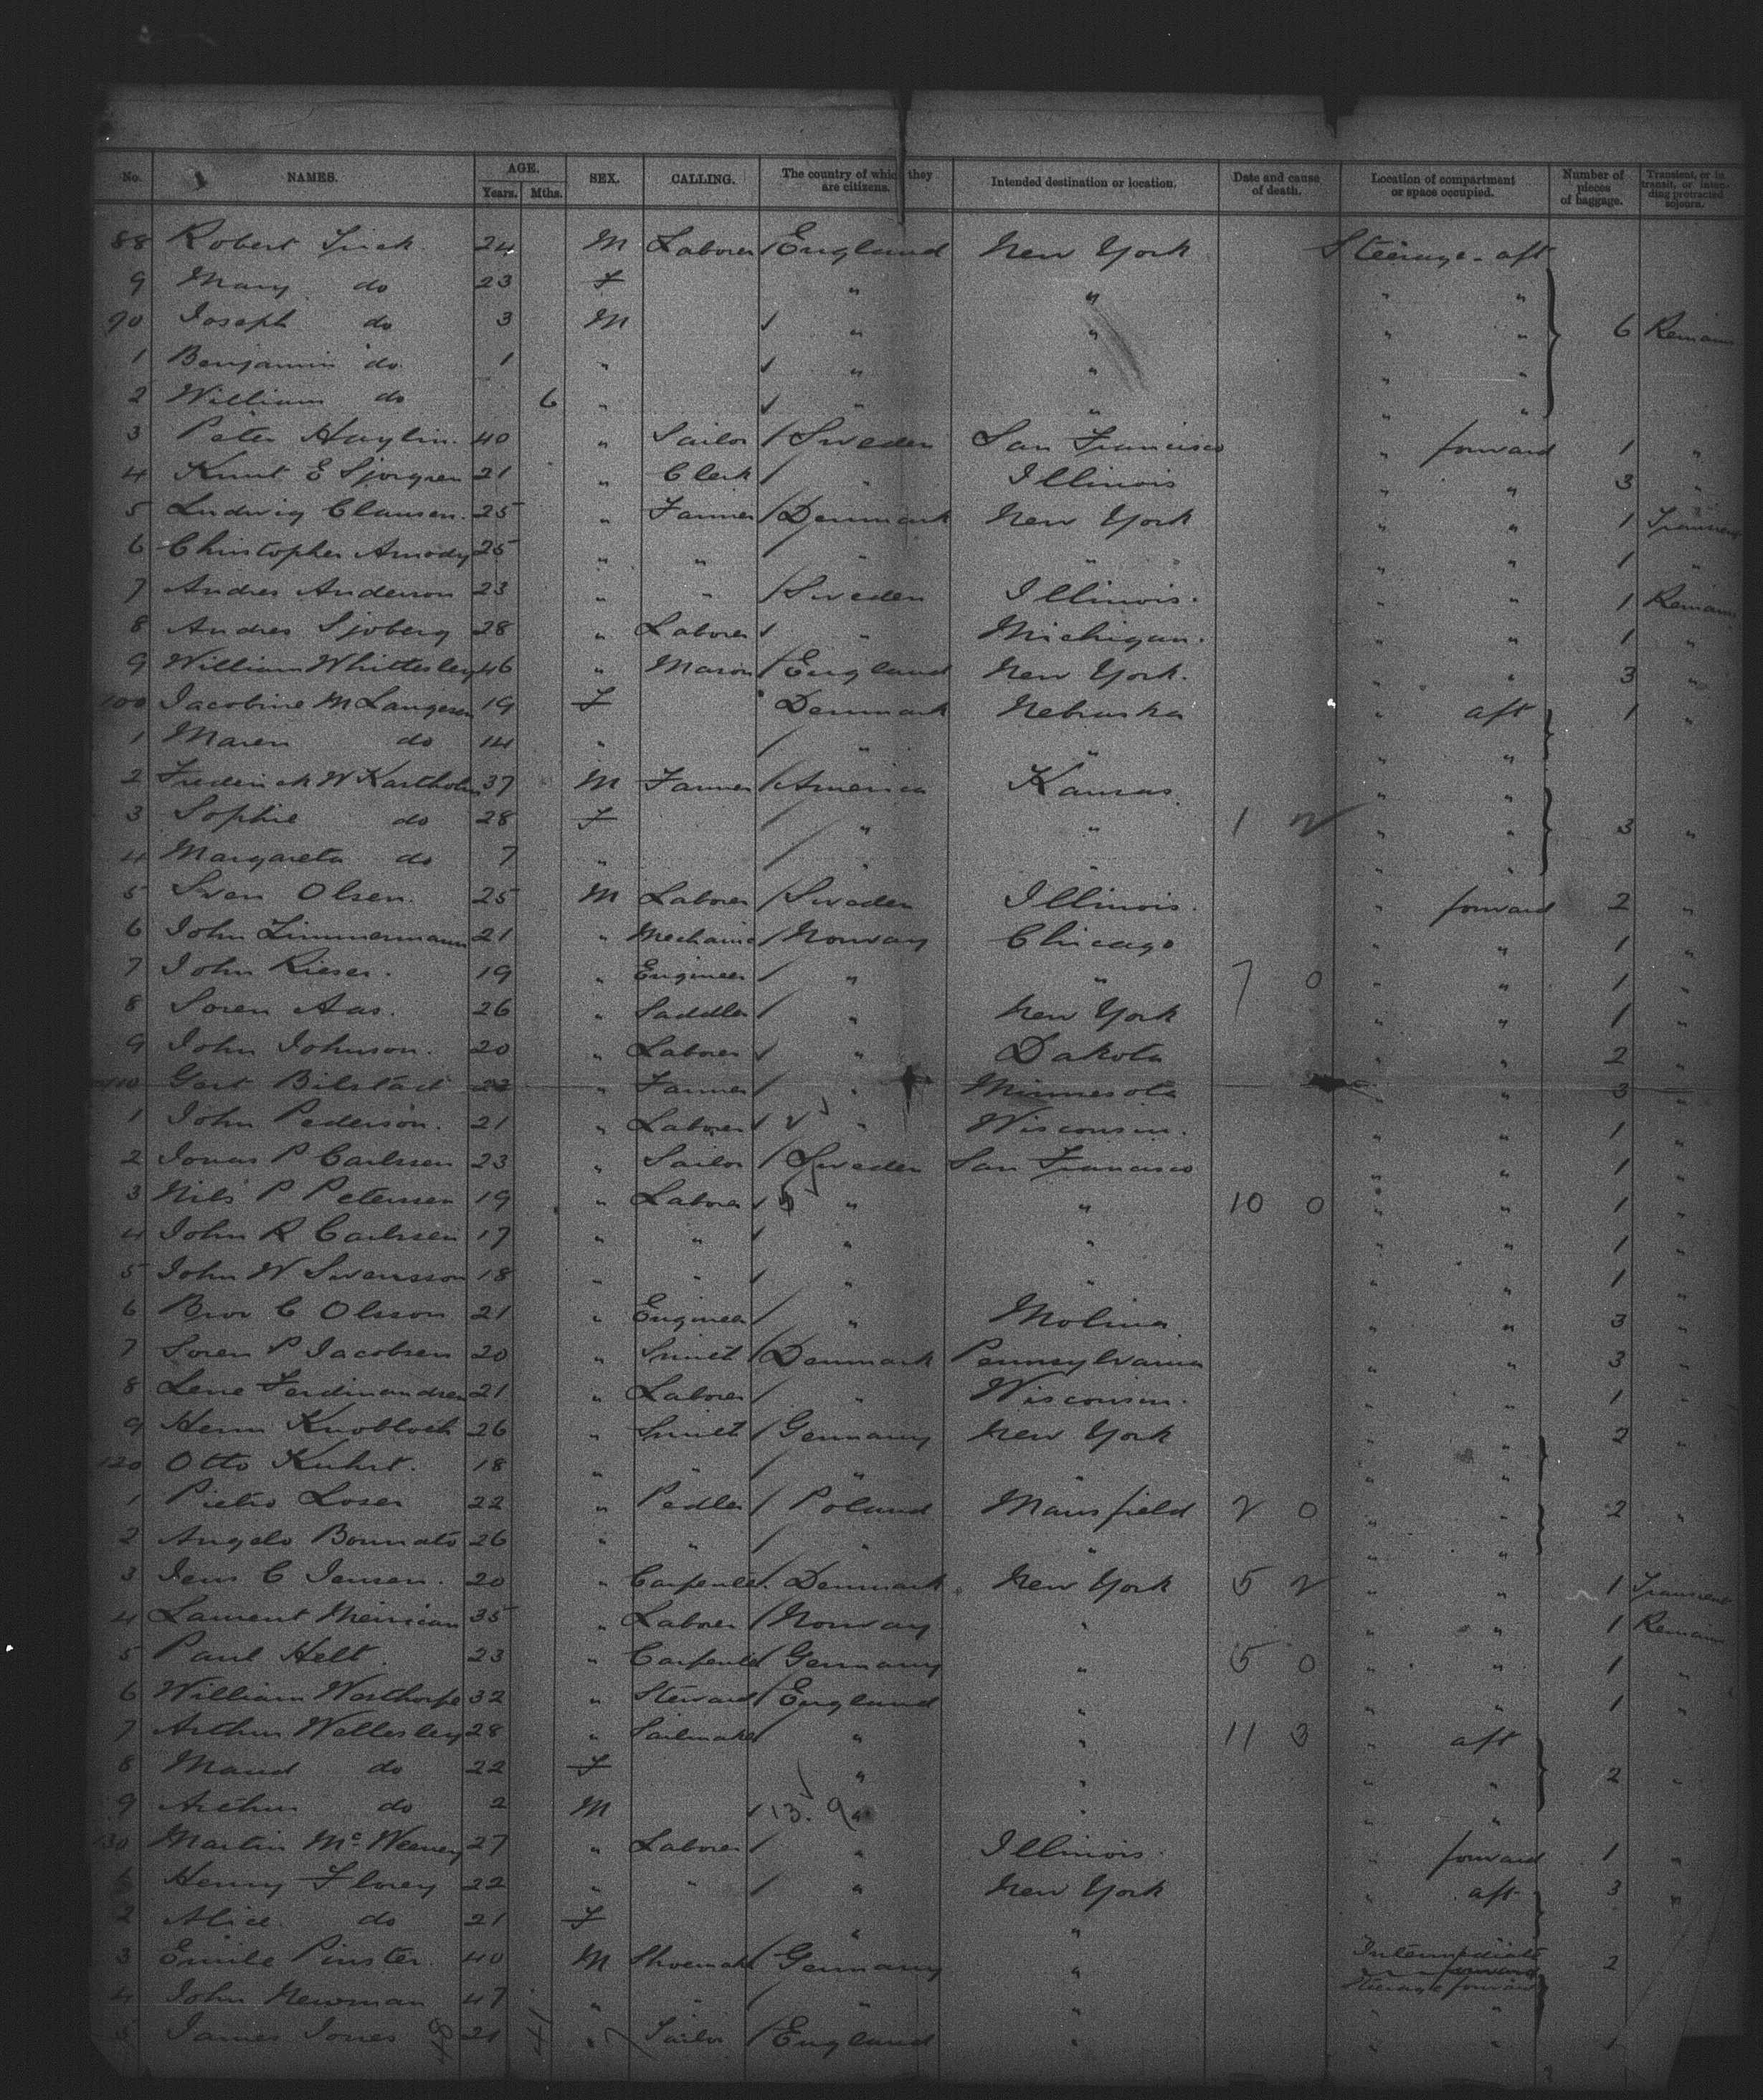 No. NAMES. AGE. Years. Mths. SEX. CALLING. The country of which they are citizens. Intended destination or location. Date and cause of death. Location of compartment or space occupied. Number of pieces of baggage. Transient, or in transit, or intending protracted sojourn.
88 Robert 24 M Laborer / England New York Steerage - aft
9 Mary do 23 F " " " "
90 Joseph do 3 M ✓ " " " " 6 Remains
1 Benjamin do 1 " ✓ " " " "
2 William do 6 " ✓ " " " "
3 Peter Haylin 40 " Sailor / Sweden San Francisco " forward 1 "
4 Knut E Sjorgren 21 " Clerk / " Illinois " " 3 "
5 Ludwig Clausen 25 " Farmer / Denmark New York " " 1 Transient
6 Christopher 25 " " / " " " " 1 "
7 Andres Anderson 23 " " / Sweden Illinois " " 1 Remains
8 Andres Sjoberg 28 " Laborer ✓ " Michigan. " " 1 "
9 William Whittesley 46 " Mason / England New York. " " 3 "
100 Jacobine M Langesen 19 F Denmark Nebraska " aft 1 "
1 Maren do 14 " / " " " "
2 Frederick W Kartholm 37 M Farmer / America Kansas " "
3 Sophie do 28 F / " " 1 2 " " 3 "
4 Margareta do 7 " / " " " "
5 Sven Olsen 25 M Laborer / Sweden Illinois. " forward 2 "
6 John Zimmermann 21 " Mechanic / Norway Chicago " " 1 "
7 John Rieser. 19 " Engineer / " " 7 0 " " 1 "
8 Soren Aas. 26 " Saddler / " New York " " 1 "
9 John Johnson. 20 " Laborer ✓ " Dakota " " 2 "
110 Bilstad 22 " Farmer / " Minnesota " " 3 "
1 John Pederson. 21 " Laborer ✓ " Wisconsin. " " 1 "
2 Jonas P Carlssen 23 " Sailor / Sweden San Francisco " " 1 "
3 Nils P Petersen 19 " Laborer ✓ " " 10 0 " " 1 "
4 John R Carlssen 17 " " ✓ " " " " 1 "
5 John W Swensson 18 " " ✓ " " " " 1 "
6 Bror C Olsson 21 " Engineer / " Molina " " 3 "
7 Soren P Jacobsen 20 " Smith / Denmark Pennsylvania " " 3 "
8 Lene Ferdinandsen 21 " Laborer / " Wisconsin. " " 1 "
9 Herm Knobloch 26 " Smith / Germany New York " " 2 "
120 Otto Kuhrt. 18 " " / " " " "
1 Pietro Loser 22 " Pedler / Poland Mansfield 2 0 " " 2 "
2 Angelo Bonnato 26 " " / " " " "
3 Jens C Jensen. 20 " Carpenter Denmark New York 5 2 " " 1 Transient
4 Laurent 35 " Laborer / Norway " " " 1 Remains
5 Paul Helt. 23 " Carpenter Germany " 5 0 " " 1 "
6 William Westhorpe 32 " Steward / England " " " 1 "
7 Arthur Wellesley 28 " Sailmaker / " " 11 3 " aft
8 Maud do 22 F " " " " 2 "
9 Arthur do 2 M ✓ 13. 9 " " "
130 Martin McWeeney 27 " Laborer / " Illinois " forward 1 "
1 Henry Florey 22 " " / " New York " aft 3 "
2 Alice do 21 F " "
3 Emile Pinster. 40 M Shoemaker / Germany " Intermediate 2
Steerage forward
4 John Newman 47 " " / " " " "
5 James Jones 21 " Sailor / England " " " 1
48 41 7